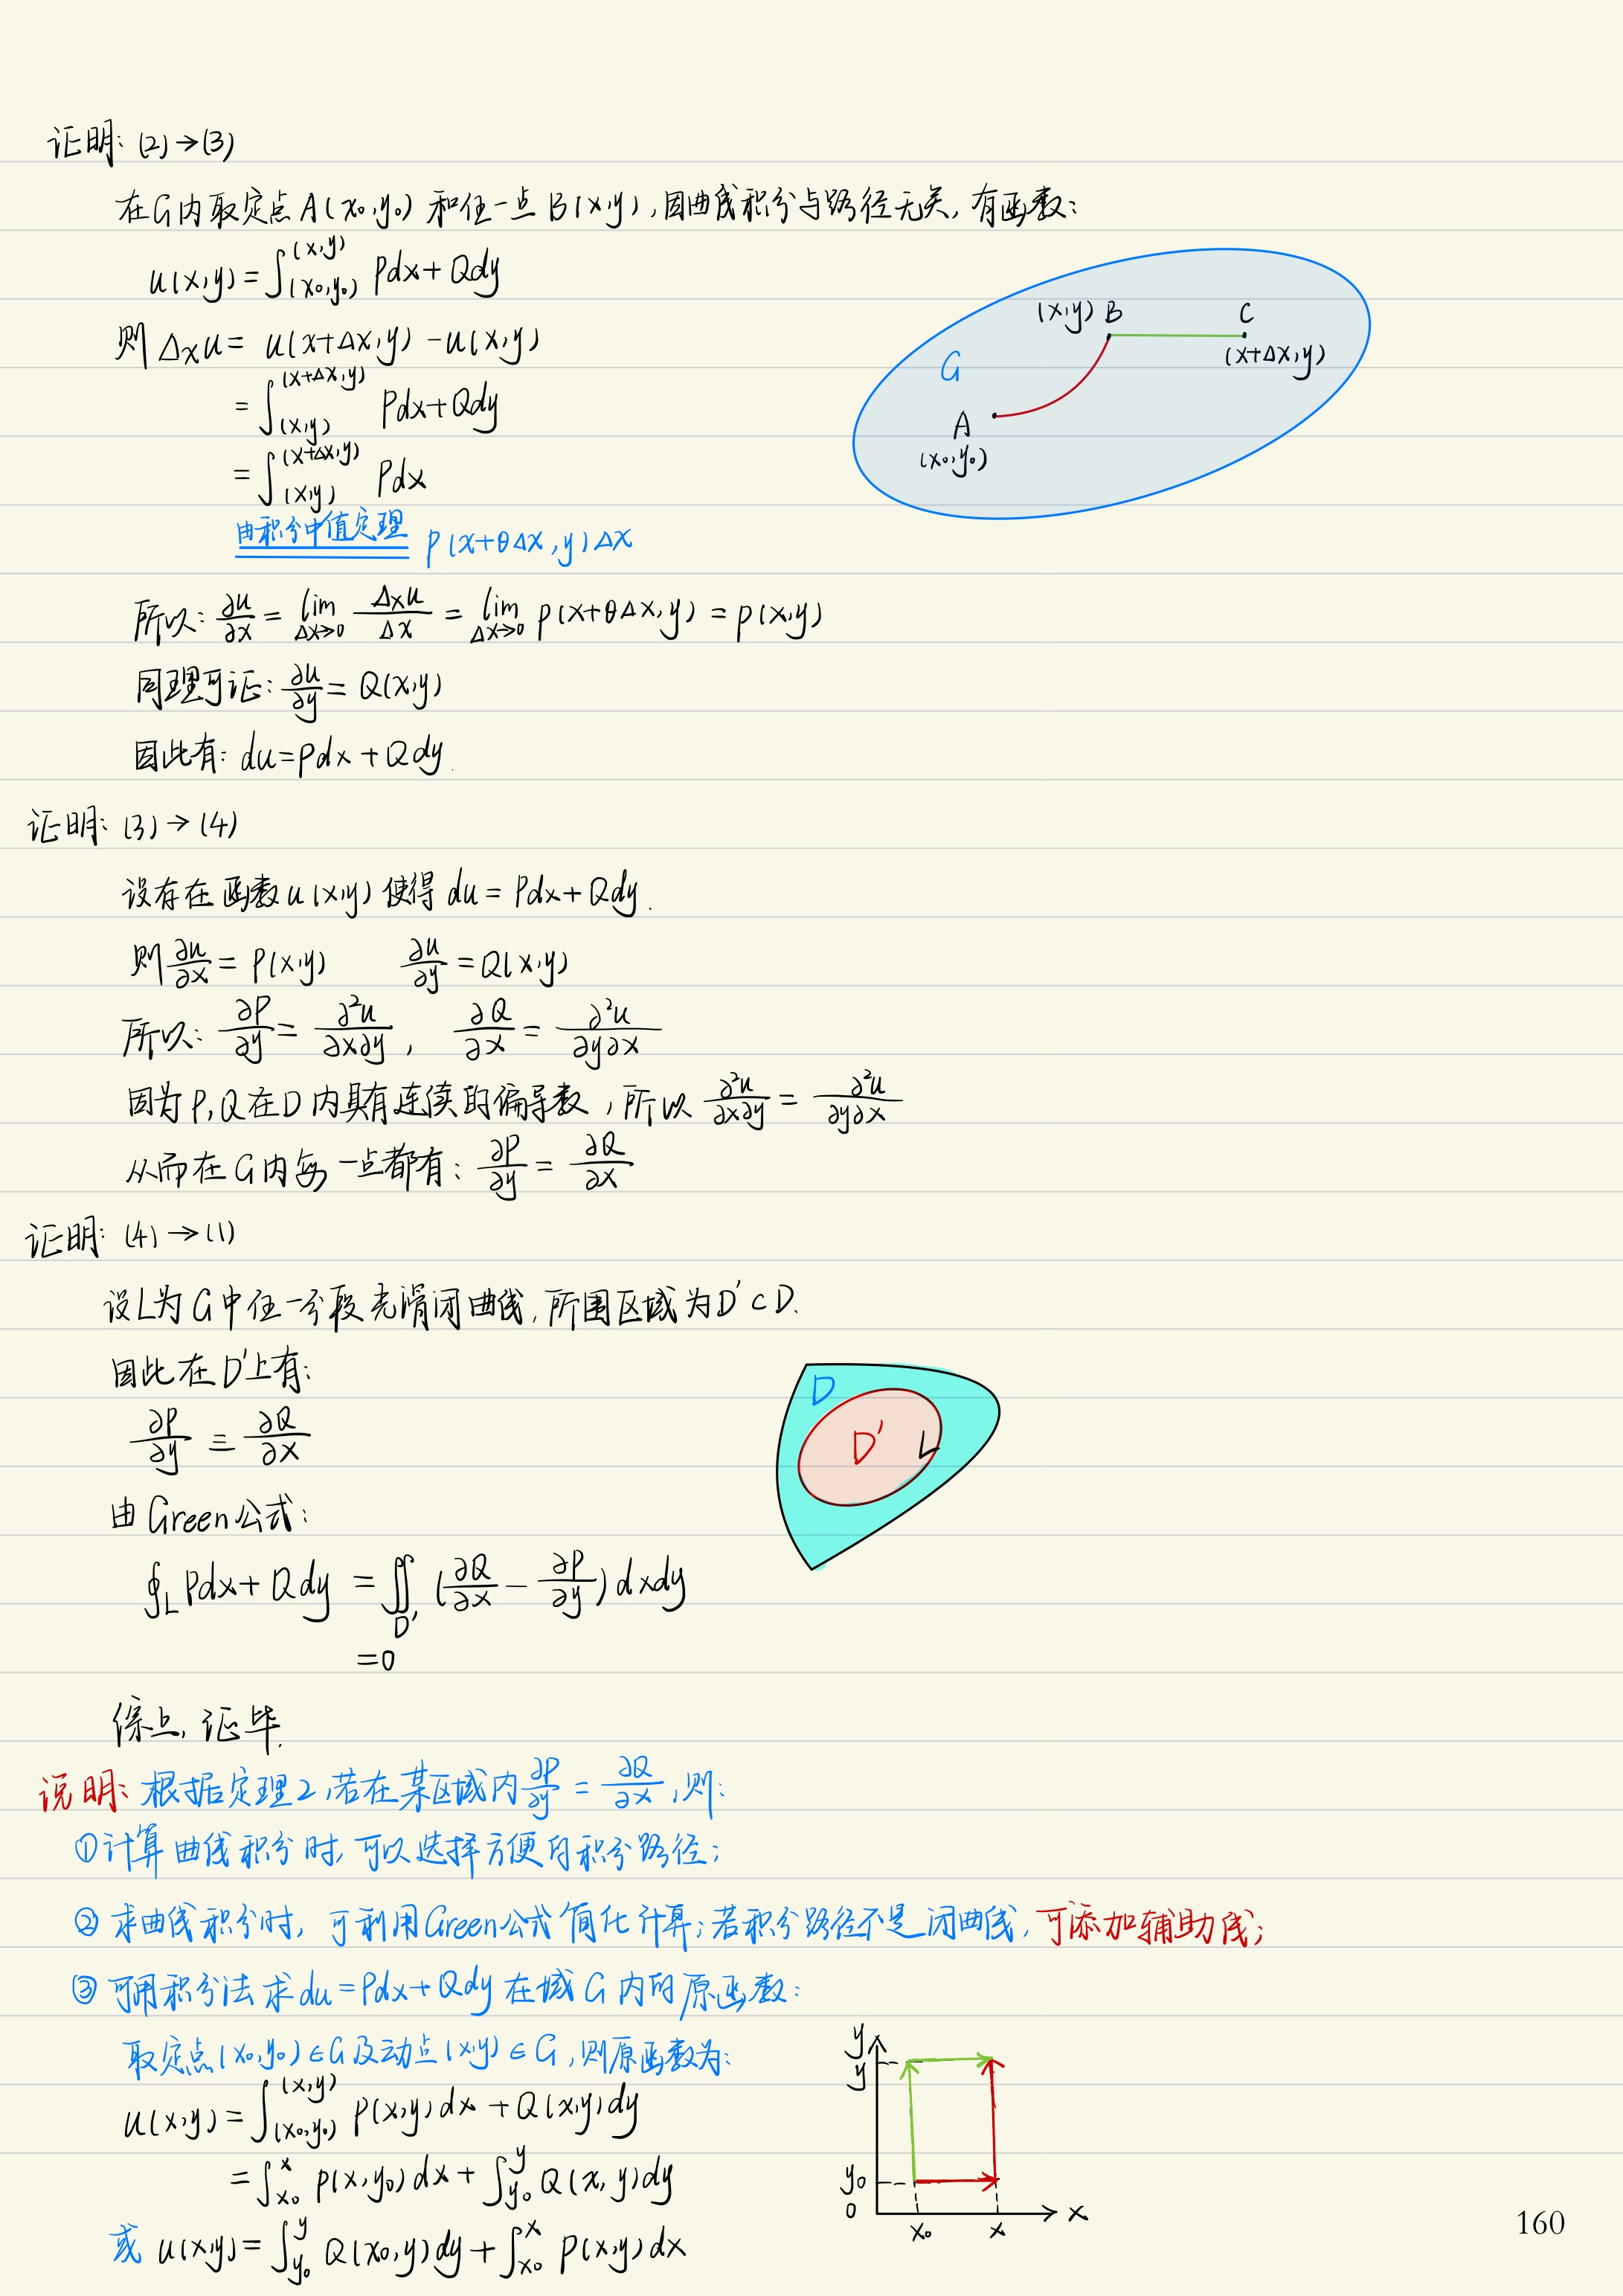 证明: (2)→(3)
在G内取定点A(x₀,y₀) 和任一点B(x,y),因曲线积分与路径无关,有函数:
u(x,y) = ∫_{(x₀,y₀)}^{(x,y)} Pdx+Qdy
则 Δₓu = u(x+Δx,y) - u(x,y)
= ∫_{(x,y)}^{(x+Δx,y)} Pdx+Qdy
= ∫_{(x,y)}^{(x+Δx,y)} Pdx
由积分中值定理 P(x+θΔx,y)Δx
(x,y) B C
(x+Δx,y)
G
A
(x₀,y₀)
所以: ∂u/∂x = lim_{Δx→0} Δₓu/Δx = lim_{Δx→0} P(x+θΔx,y) = P(x,y)
同理可证: ∂u/∂y = Q(x,y)
因此有: du=Pdx+Qdy.
证明: (3)→(4)
设存在函数u(x,y)使得 du = Pdx+Qdy.
则 ∂u/∂x = P(x,y) ∂u/∂y = Q(x,y)
所以: ∂P/∂y = ∂²u/∂x∂y , ∂Q/∂x = ∂²u/∂y∂x
因为P,Q在D内具有连续的偏导数,所以 ∂²u/∂x∂y = ∂²u/∂y∂x
从而在G内每一点都有: ∂P/∂y = ∂Q/∂x
证明: (4)→(1)
设L为G中任一分段光滑闭曲线,所围区域为D'⊂D.
因此在D'上有:
∂P/∂y ≡ ∂Q/∂x
由Green公式:
∮_L Pdx+Qdy = ∬_{D'} (∂Q/∂x - ∂P/∂y)dxdy
=0
D
D' L
综上,证毕.
说明: 根据定理2,若在某区域内 ∂P/∂y = ∂Q/∂x ,则:
①计算曲线积分时,可以选择方便的积分路径;
②求曲线积分时,可利用Green公式简化计算;若积分路径不是闭曲线,可添加辅助线;
③可用积分法求du=Pdx+Qdy在域G内的原函数:
取定点(x₀,y₀)∈G及动点(x,y)∈G,则原函数为:
u(x,y) = ∫_{(x₀,y₀)}^{(x,y)} P(x,y)dx+Q(x,y)dy
= ∫_{x₀}^{x} P(x,y₀)dx + ∫_{y₀}^{y} Q(x,y)dy
或 u(x,y) = ∫_{y₀}^{y} Q(x₀,y)dy + ∫_{x₀}^{x} P(x,y)dx
y
y
y₀
0 x₀ x x
160